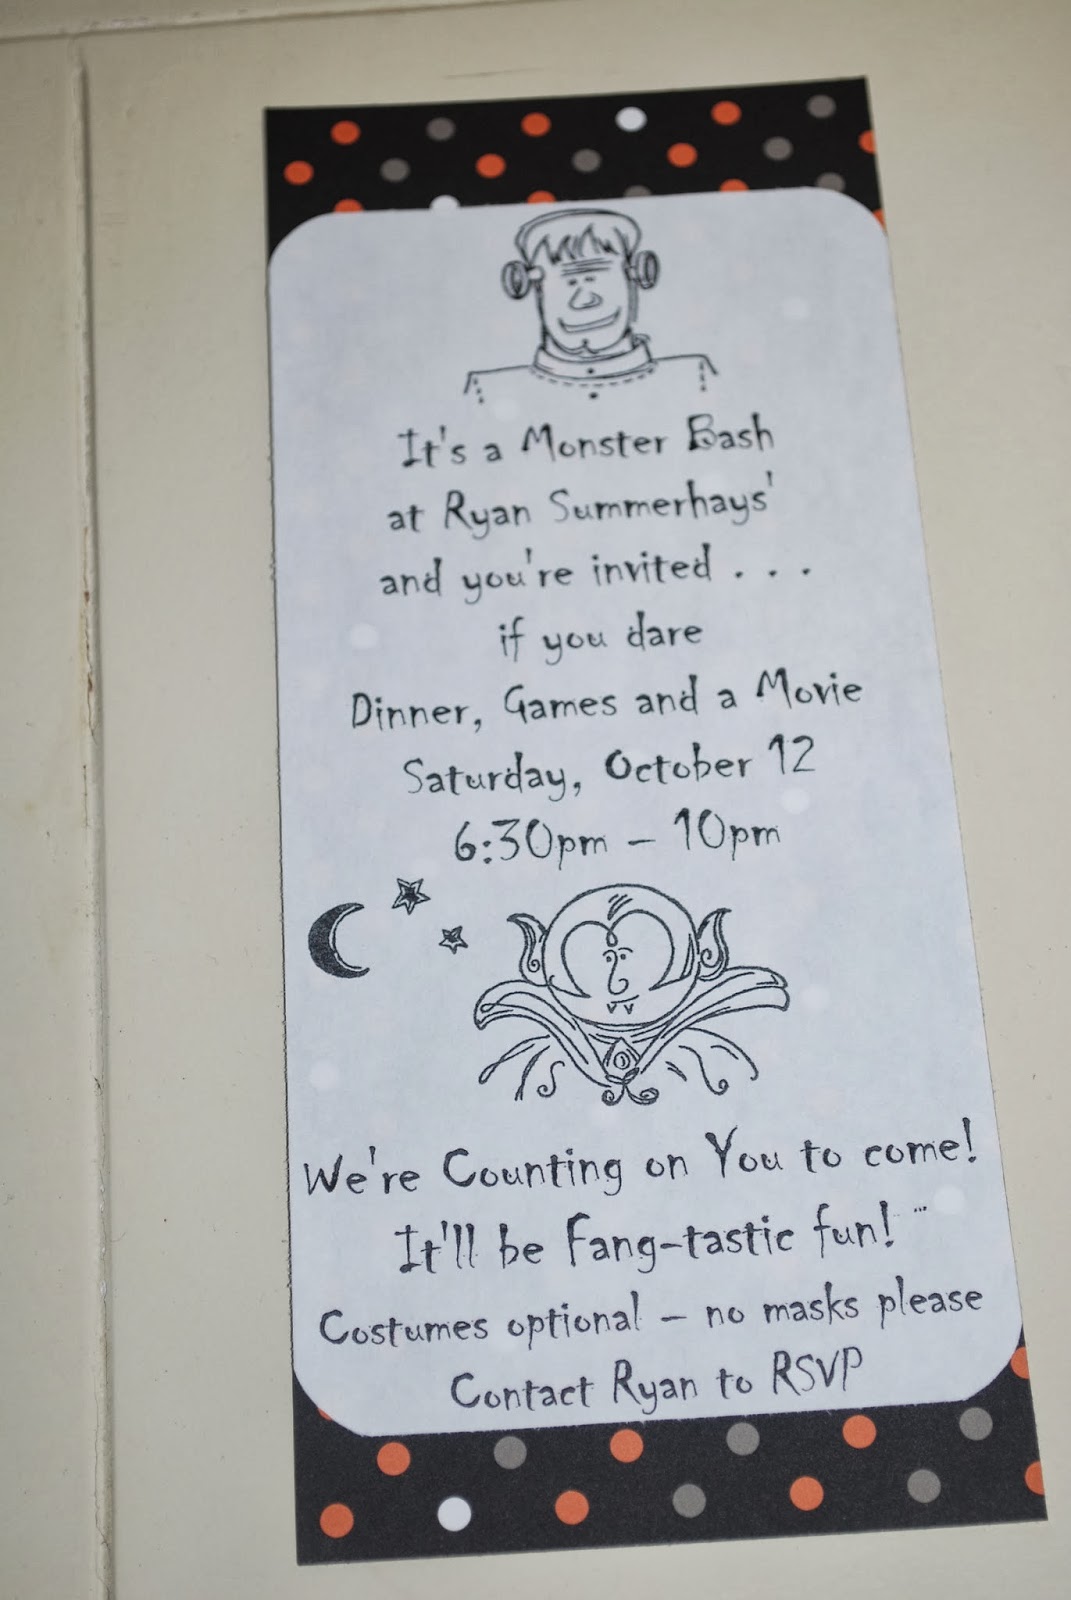 It's a Monster Bash
at Ryan Summerhays'
and you're invited . . .
if you dare
Dinner, Games and a Movie
Saturday, October 12
6:30pm – 10pm
We're Counting on You to come!
It'll be Fang-tastic fun!
Costumes optional – no masks please
Contact Ryan to RSVP